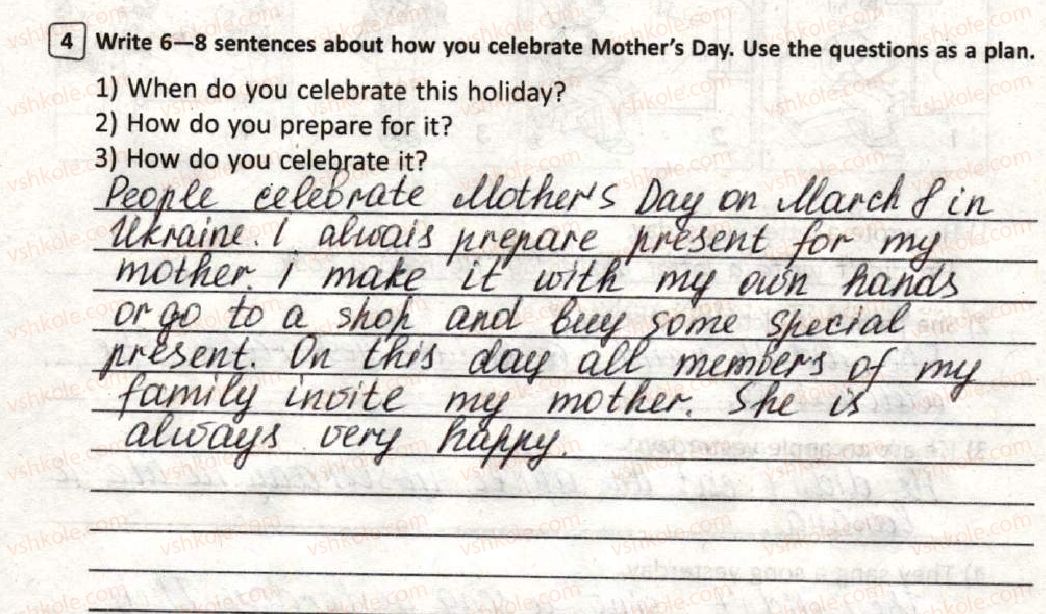 4 Write 6—8 sentences about how you celebrate Mother's Day. Use the questions as a plan.
1) When do you celebrate this holiday?
2) How do you prepare for it?
3) How do you celebrate it?
People celebrate Mother's Day on March 8 in
Ukraine. I alwais prepare present for my
mother. I make it with my own hands
or go to a shop and buy some special
present. On this day all members of my
family invite my mother. She is
always very happy.